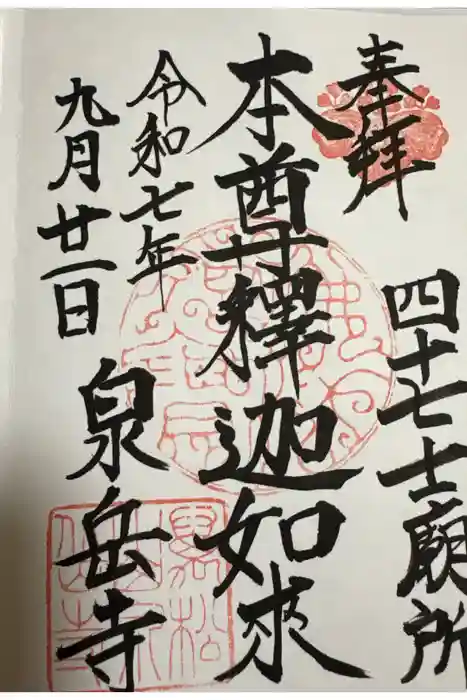 奉拜
四十七士廟所
本尊釋迦如來
令和七年
九月廿一日
泉岳寺